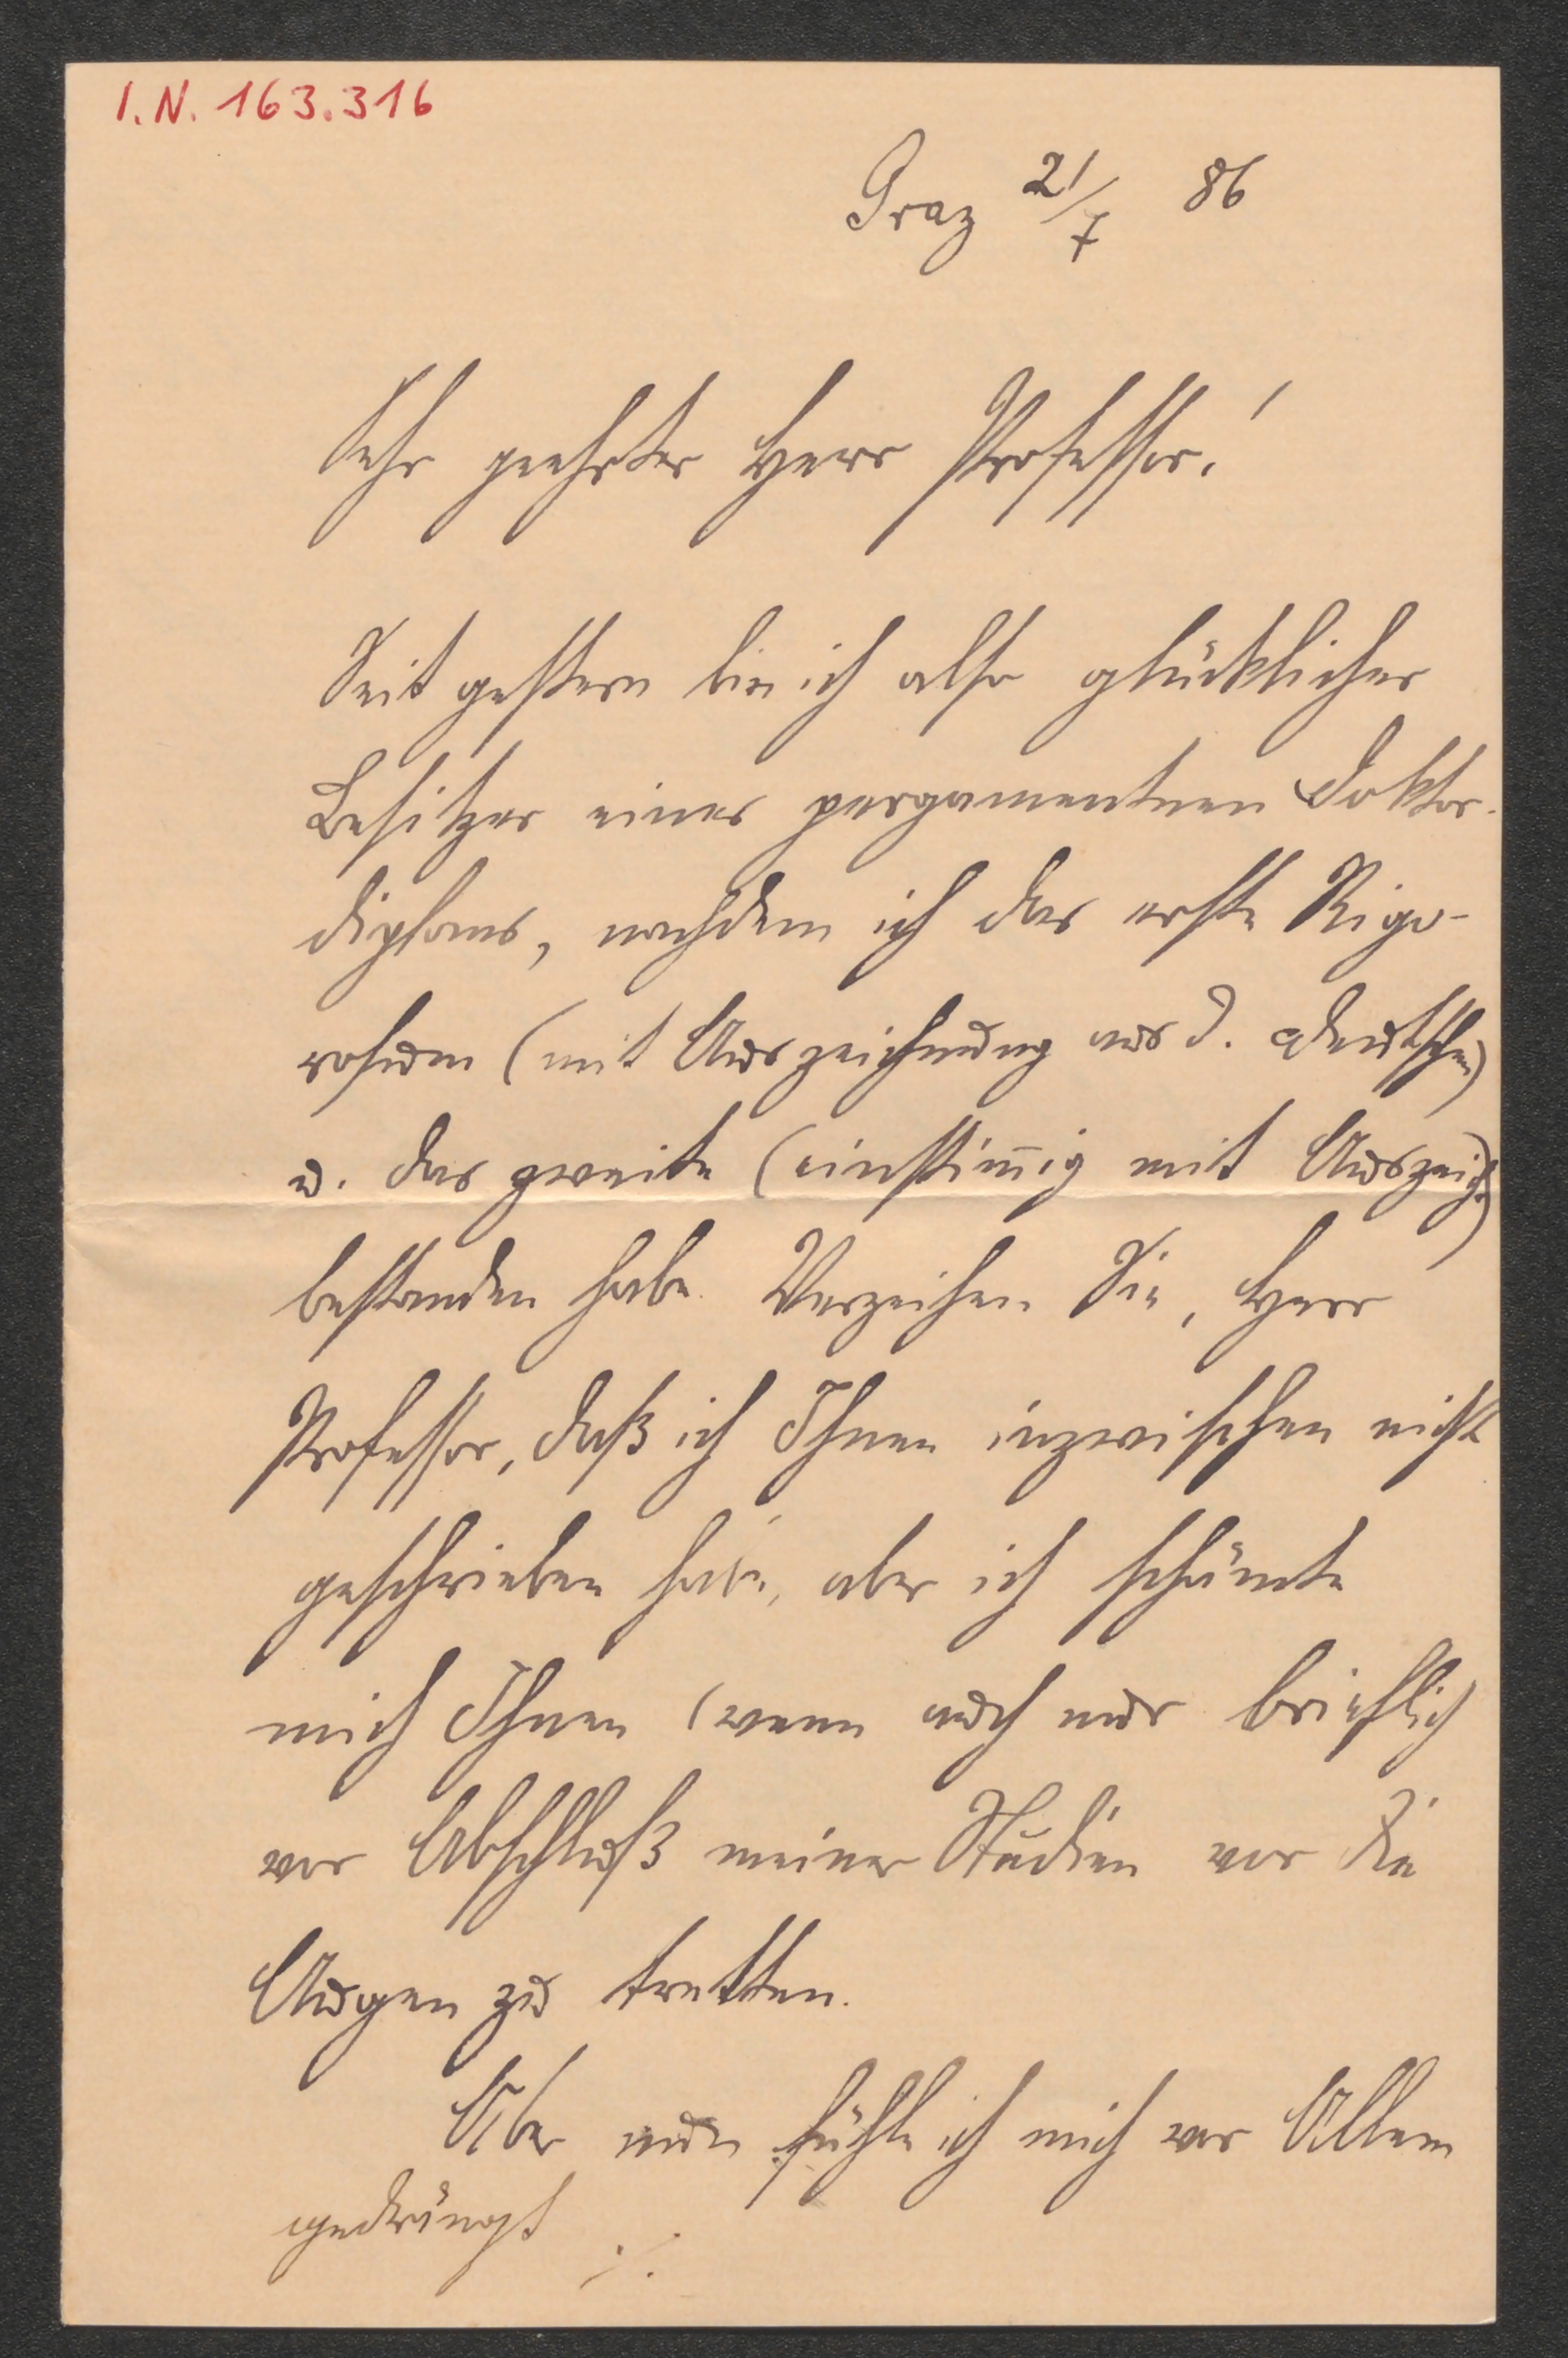 I.N. 163.316
Graz 21/7 86
Sehr geehrter Herr Professor!
Seit gestern bin ich also glücklicher
Besitzer eines pergamentnen Doktor-
diploms, nachdem ich das erste Rigo-
rosum (mit Auszeichnung aus d. Deutschen)
u. das zweite (einstim̅ig mit Auszeich.)
bestanden habe. Verzeihen Sie, Herr
Professor, daß ich Ihnen inzwischen nicht
geschrieben habe, aber ich schämte
mich Ihnen (wenn auch nur brieflich)
vor Abschluß meiner Studien vor die
Augen zu tretten.
Aber nun fühle ich mich vor Allem
gedrängt ./.